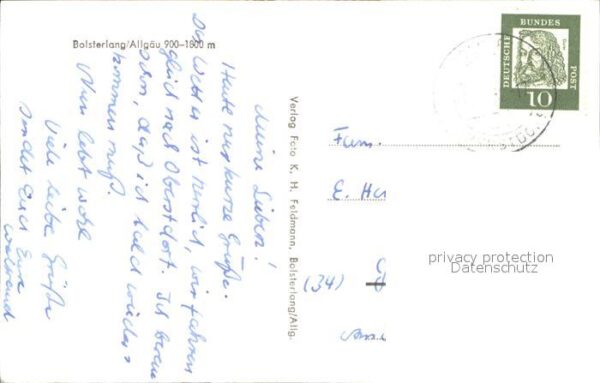 Bolsterlang/Allgäu 900-1800 m
Meine Lieben!
Heute nur kurze Grüße.
Das Wetter ist herrlich, wir fahren
gleich nach Oberstdorf. Ich
schon, daß ich bald wieder
kommen muß.
Nun lebt wohl
Viele liebe Grüße
sendet Euch Eure
Waltraud
Verlag Foto K. H. Feldmann, Bolsterlang/Allg.
DEUTSCHE BUNDES POST
Dürer
10
Fam.
E. Ha
(34)
privacy protection
Datenschutz